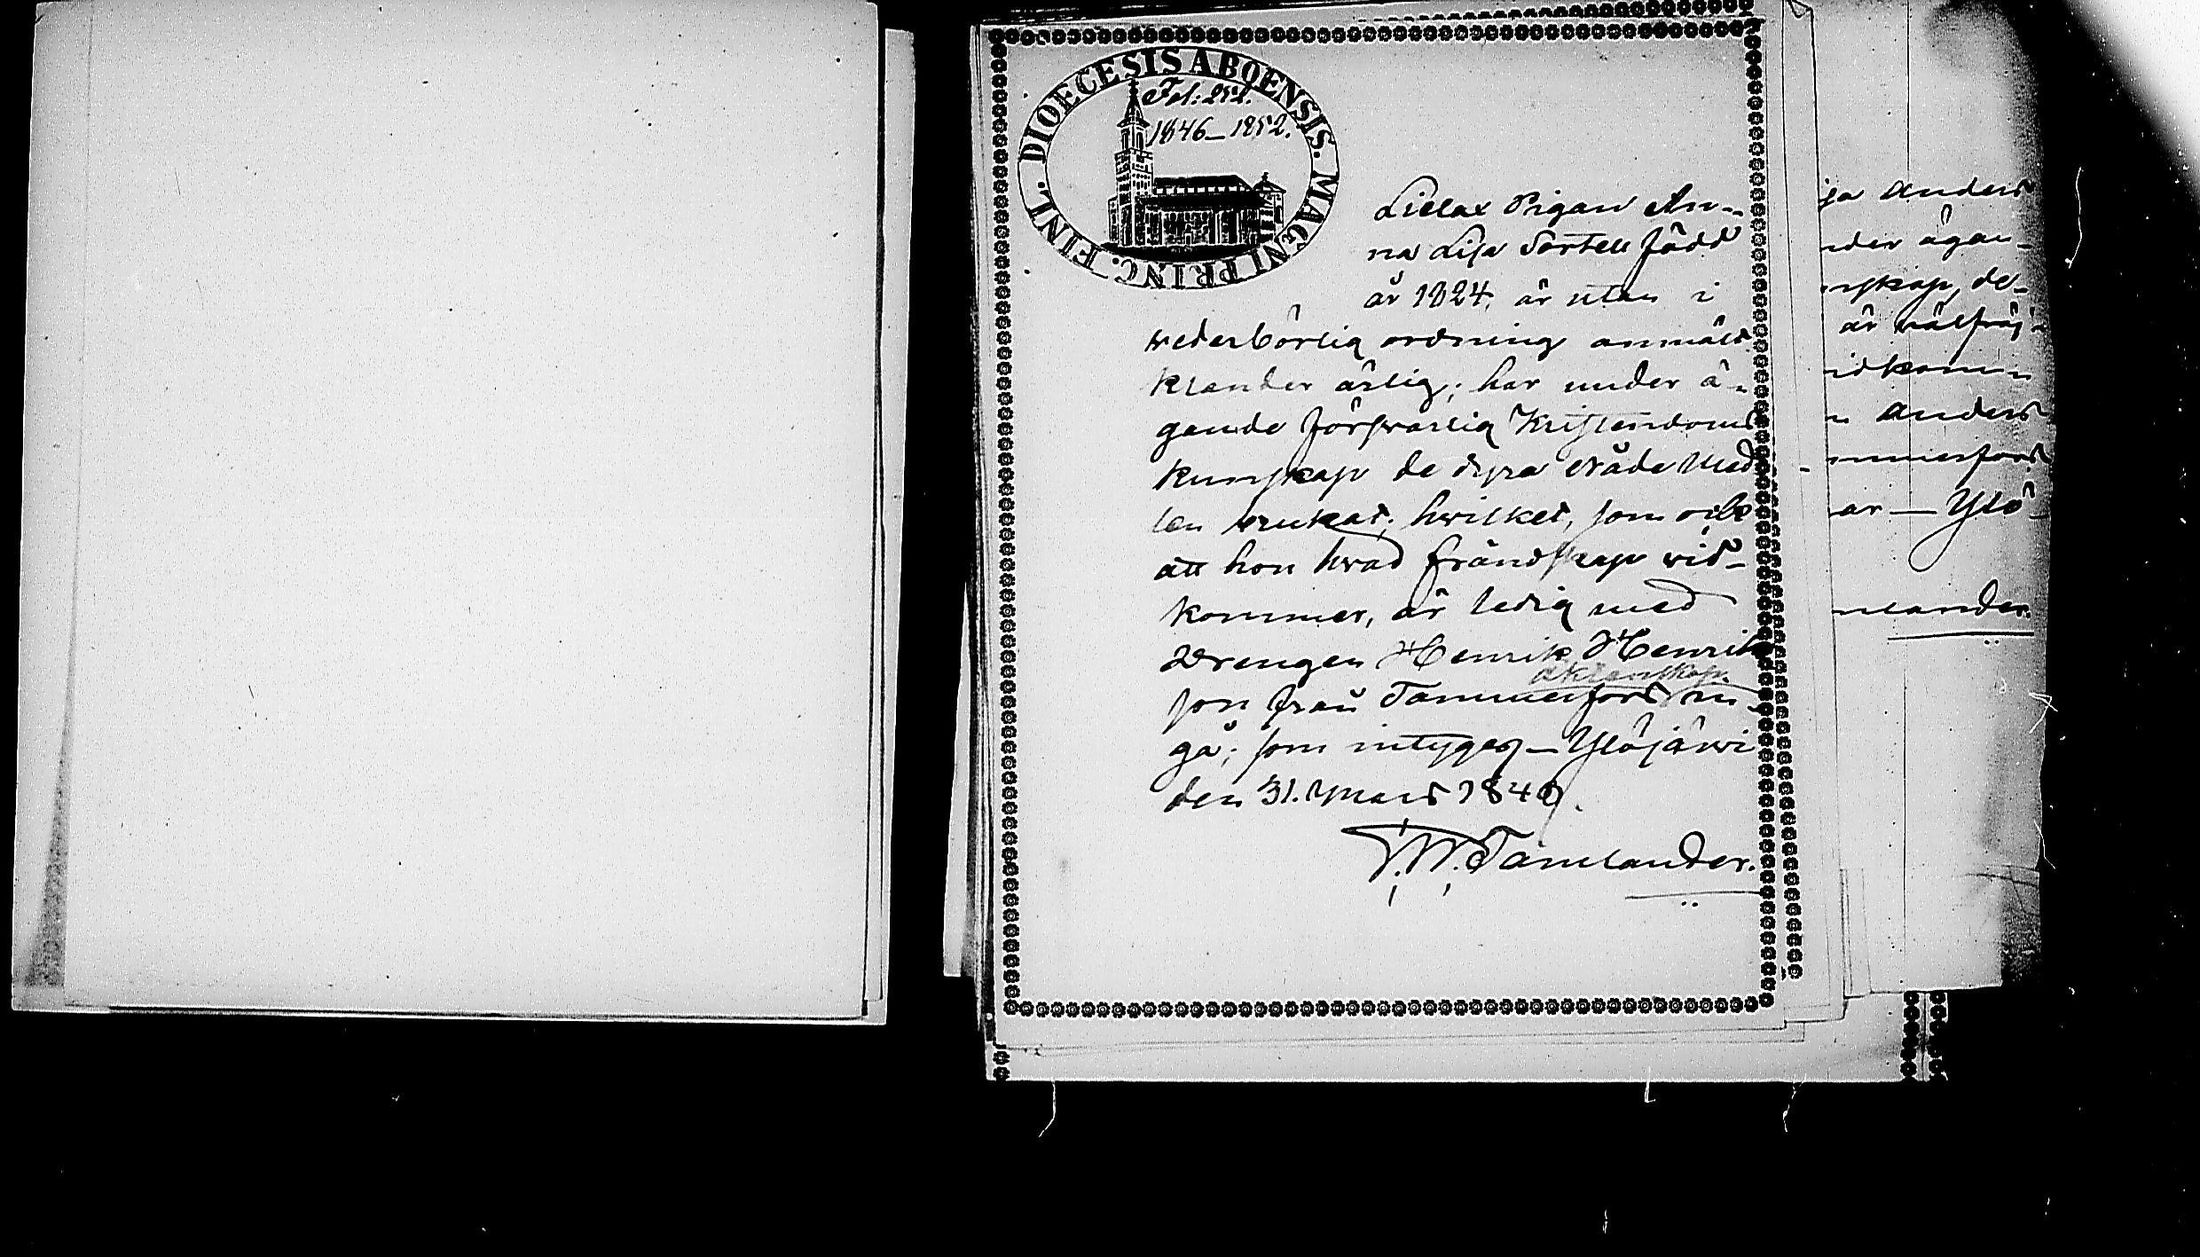 DIOECESIS ABOENSIS. MAGNI PRINC. FINL.
Fol: 252.
1846_ 1852.
Lielax Pigan An-
na Lisa Sortell född
år 1824, är utan i
wederbörlig ordning anmält
klander ärlig; har under ä-
gande förswarlig Kristendoms
kunskap de dyra Nåde Med
len brukat; hwilket, som ock
att hon hvad frändskap wid-
kommer, är ledig med
Drengen Henrik Henriks
äktenskap
son från Tammerfors in
gå; som intygas _ Ylöjärwi
den 31. Mars 1849.
Tamlander.
ja Anders
nder ägan-
nskap, de-
är wälfräj-
idkom-
n Anders
mmerfors
ar _ Ylö-
mlander.